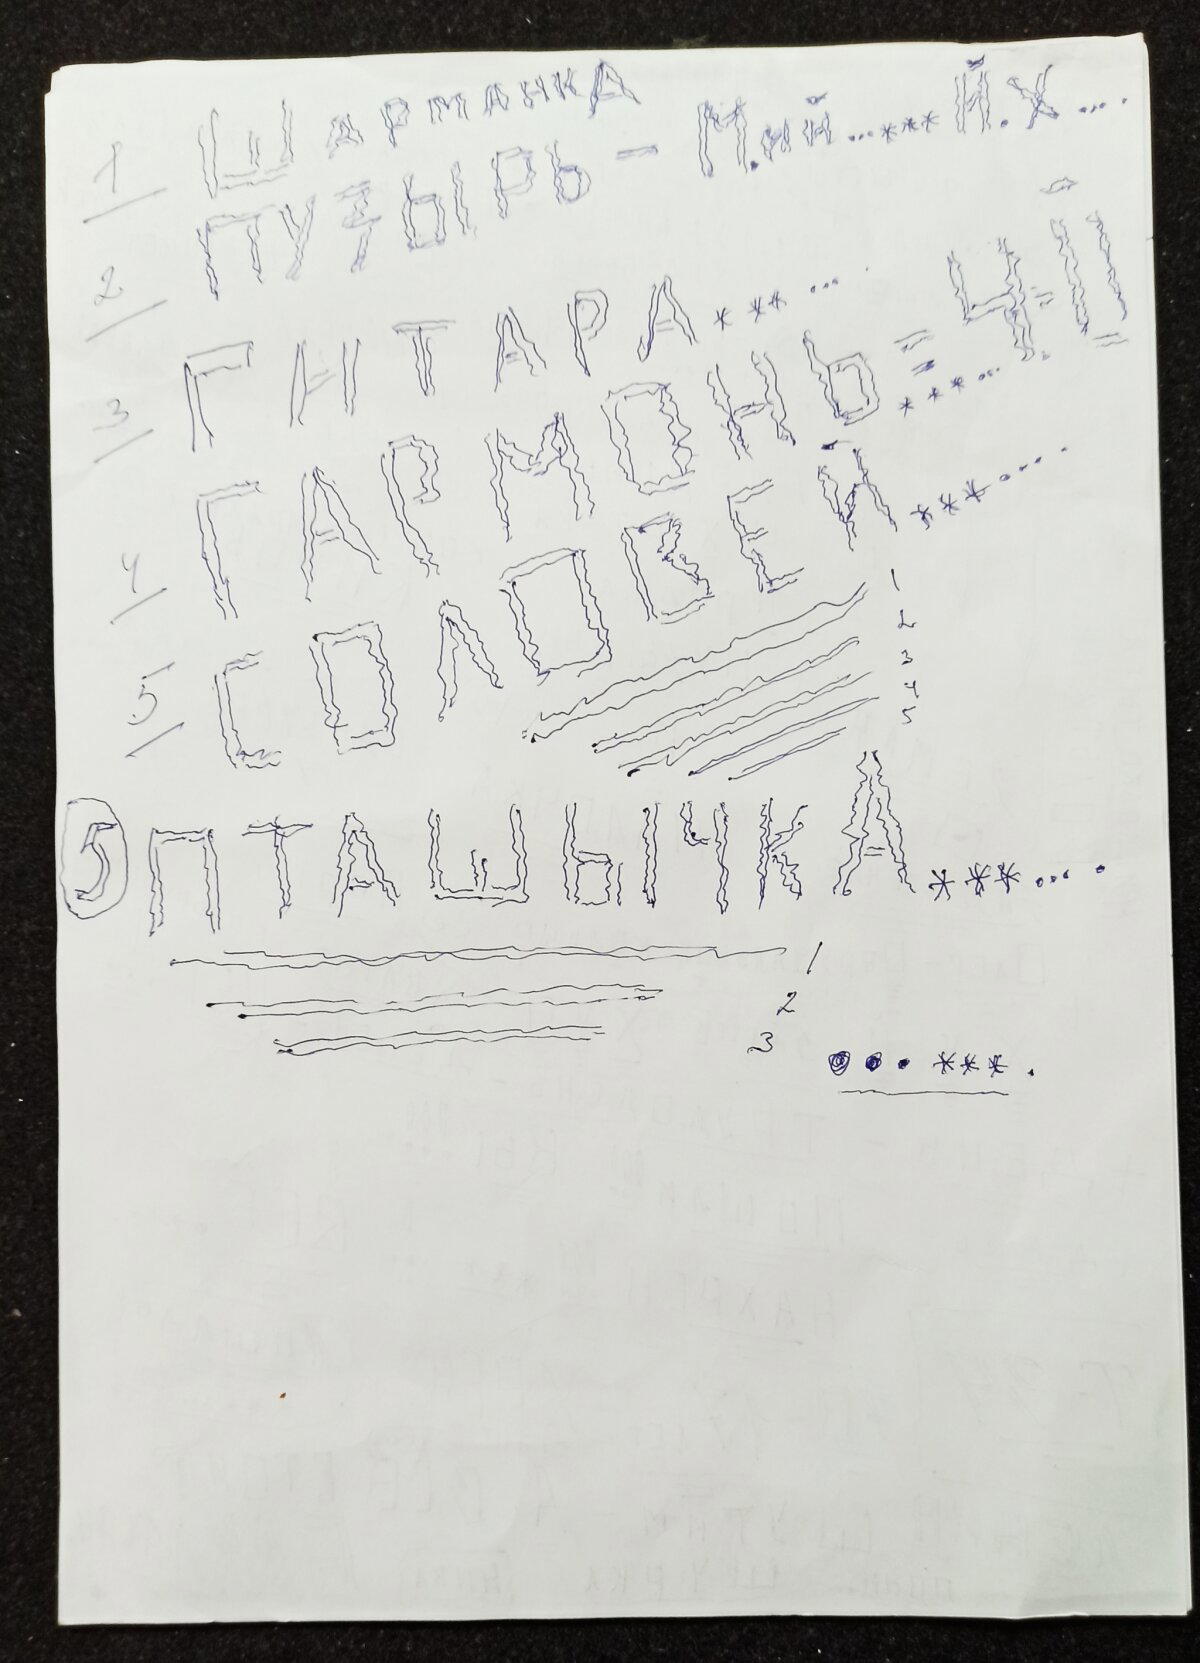 1 ШАРМАНКА
2 ПУЗЫРЬ – М.ИЙ...*** Й.Х....
3 ГИТАРА***...
4 ГАРМОНЬ = 4.Й ***...
5 СОЛОВЕЙ***....
1
2
3
4
5
5 ПТАШЫЧКА***....
1
2
3
●●● ***.